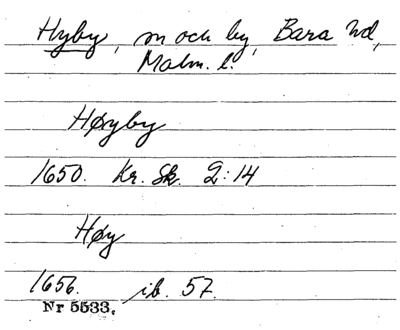 Hyby, sn och by, Bara hd,
Malm. l.
Høyby
1650. Kr. Sk. 2:14
Høy
1656. ib. 57.
Nr 5533.